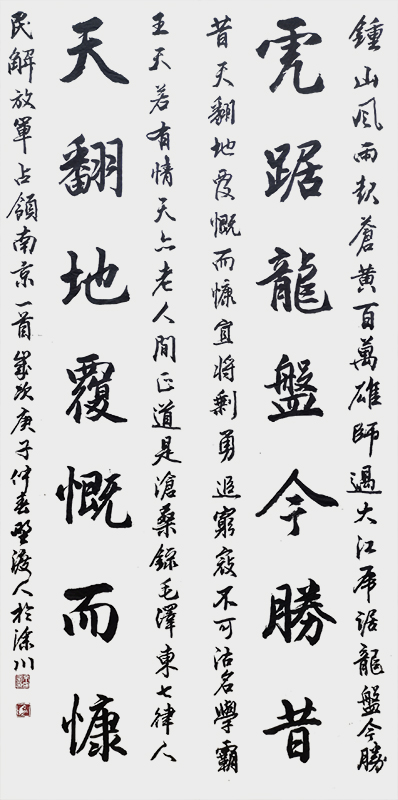 鍾山風雨起蒼黃百萬雄師過大江虎踞龍盤今勝
虎踞龍盤今勝昔
昔天翻地覆慨而慷宜將剩勇追窮寇不可沽名學霸
王天若有情天亦老人間正道是滄桑錄毛澤東七律人
天翻地覆慨而慷
民解放軍占領南京一首歲次庚子仲春野渡人於川